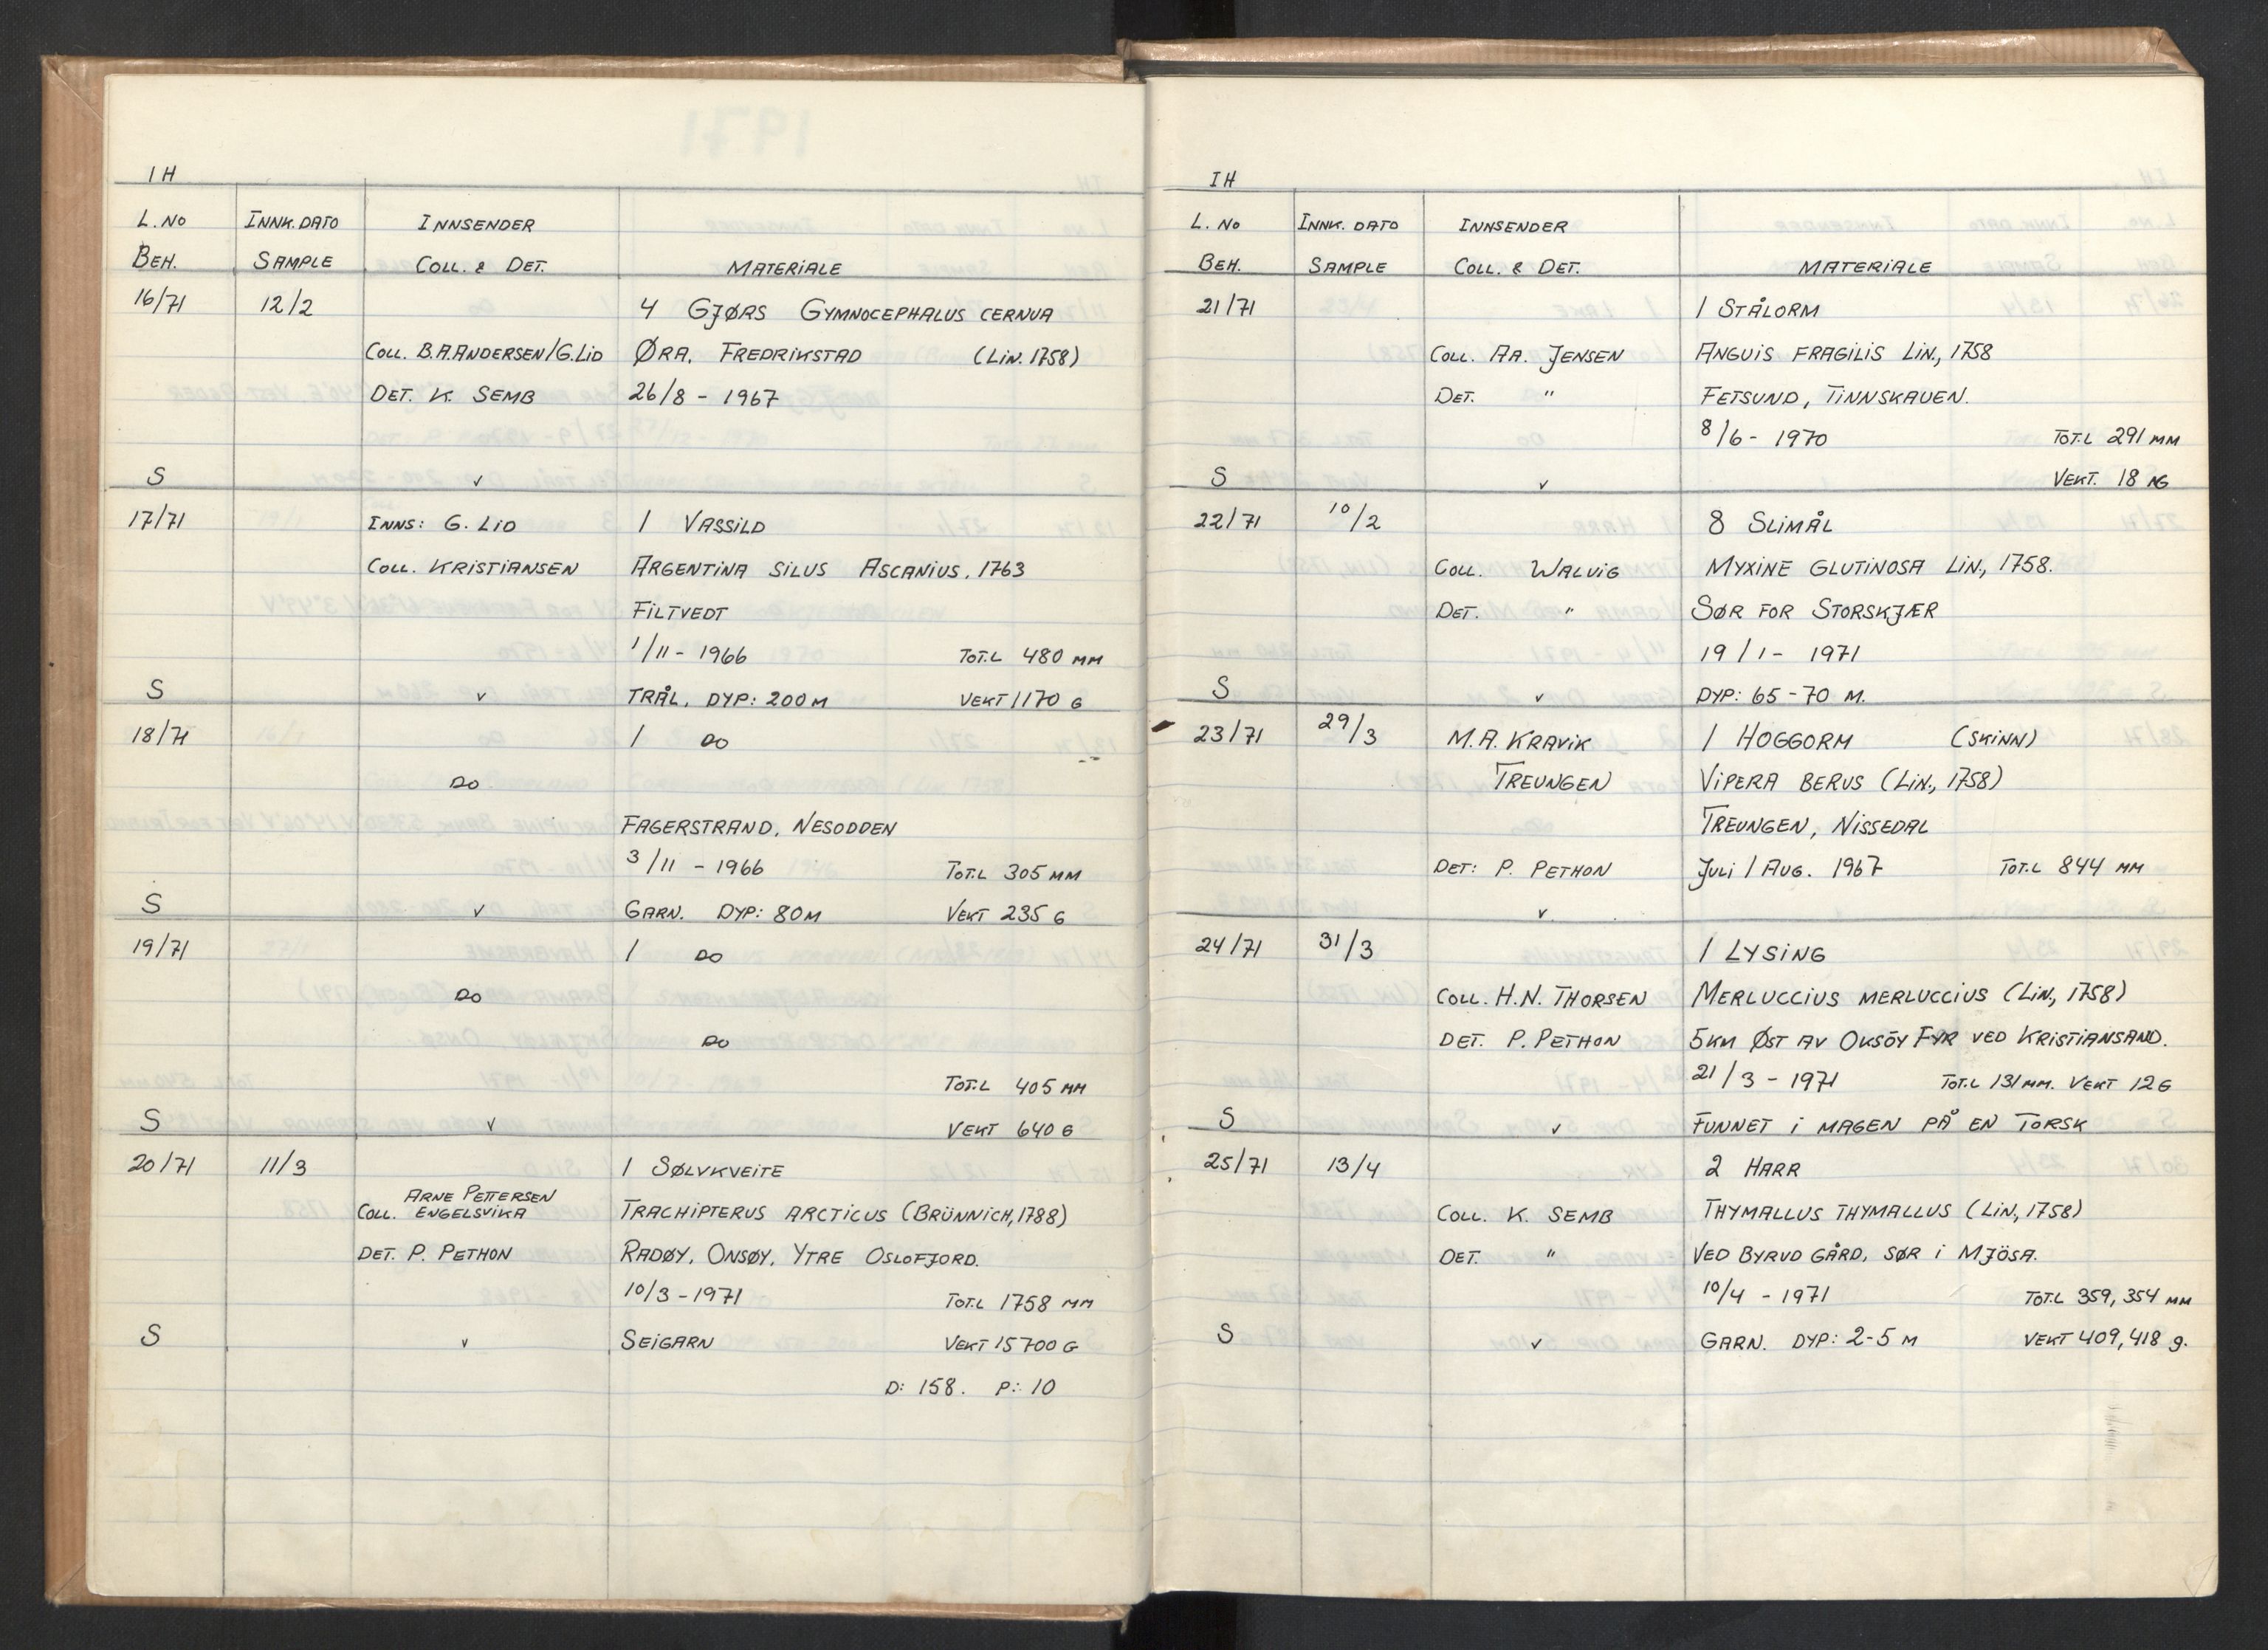 IH
L. No INNK. DATO INNSENDER
BEH. SAMPLE COLL. & DET. MATERIALE
16/71 12/2 4 GJØRS GYMNOCEPHALUS CERNUA
COLL. B.A. ANDERSEN/G. LID ØRA, FREDRIKSTAD (LIN. 1758)
DET. K. SEMB 26/8 - 1967
S v
17/71 INNS: G. LID 1 VASSILD
COLL. KRISTIANSEN ARGENTINA SILUS ASCANIUS, 1763
FILTVEDT
1/11 - 1966 TOT.L 480 MM
S v TRÅL, DYP: 200 M VEKT 1170 G
18/71 1 DO
DO
FAGERSTRAND, NESODDEN
3/11 - 1966 TOT.L 305 MM
S v GARN. DYP: 80 M VEKT 235 G
19/71 1 DO
DO
DO
TOT.L 405 MM
S v VEKT 640 G
20/71 11/3 1 SØLVKVEITE
ARNE PETTERSEN
COLL. ENGELSVIKA TRACHIPTERUS ARCTICUS (BRÜNNICH, 1788)
DET. P. PETHON RADØY, ONSØY, YTRE OSLOFJORD.
10/3 - 1971 TOT.L 1758 MM
S v SEIGARN VEKT 15700 G
D: 158. P: 10
IH
L. No INNK. DATO INNSENDER
BEH. SAMPLE COLL. & DET. MATERIALE
21/71 1 STÅLORM
COLL. AA. JENSEN ANGUIS FRAGILIS LIN., 1758
DET. " FETSUND, TINNSKAUEN.
8/6 - 1970 TOT.L 291 MM
S v VEKT. 18 G
22/71 10/2 8 SLIMÅL
COLL. WALVIG MYXINE GLUTINOSA LIN., 1758.
DET. " SØR FOR STORSKJÆR
19/1 - 1971
S v DYP: 65-70 M.
23/71 29/3 M.A. KRAVIK 1 HOGGORM (SKINN)
TREUNGEN VIPERA BERUS (LIN., 1758)
TREUNGEN, NISSEDAL
DET: P. PETHON JULI / AUG. 1967 TOT.L 844 MM
v
24/71 31/3 1 LYSING
COLL. H.N. THORSEN MERLUCCIUS MERLUCCIUS (LIN., 1758)
DET. P. PETHON 5 KM ØST AV OKSÖY FYR VED KRISTIANSAND.
21/3 - 1971 TOT.L 131 MM. VEKT 12 G
S v FUNNET I MAGEN PÅ EN TORSK
25/71 13/4 2 HARR
COLL. K. SEMB THYMALLUS THYMALLUS (LIN., 1758)
DET. " VED BYRUD GÅRD, SØR I MJÖSA.
10/4 - 1971 TOT.L 359, 354 MM
S v GARN. DYP: 2-5 M VEKT 409, 418 g.